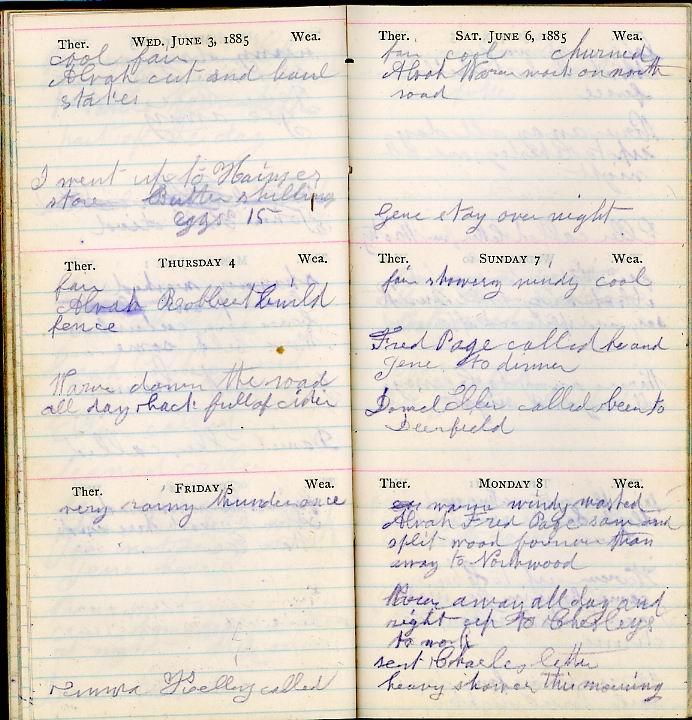 Ther. WED. JUNE 3, 1885 Wea.
cool fair
Alvah cut and haul
stakes
I went up to Haines
store Butter shilling
eggs 15
Ther. THURSDAY 4 Wea.
fair
Alvah Robbert build
fence
down the road
all day back full of cider
Ther. FRIDAY 5 Wea.
very rainy thunder once
Emma called
Ther. SAT. JUNE 6, 1885 Wea.
fair cool churned
Alvah work on north
road
Gene stay over night
Ther. SUNDAY 7 Wea.
fair showery windy cool
Fred Page called he and
Gene to dinner
Daniel called been to
Deerfield
Ther. MONDAY 8 Wea.
warm windy washed
Alvah Fred Page saw and
split wood forenoon than
away to Northwood
away all day and
night up to Chesleys
to work
sent Charles letter
heavy shower this morning